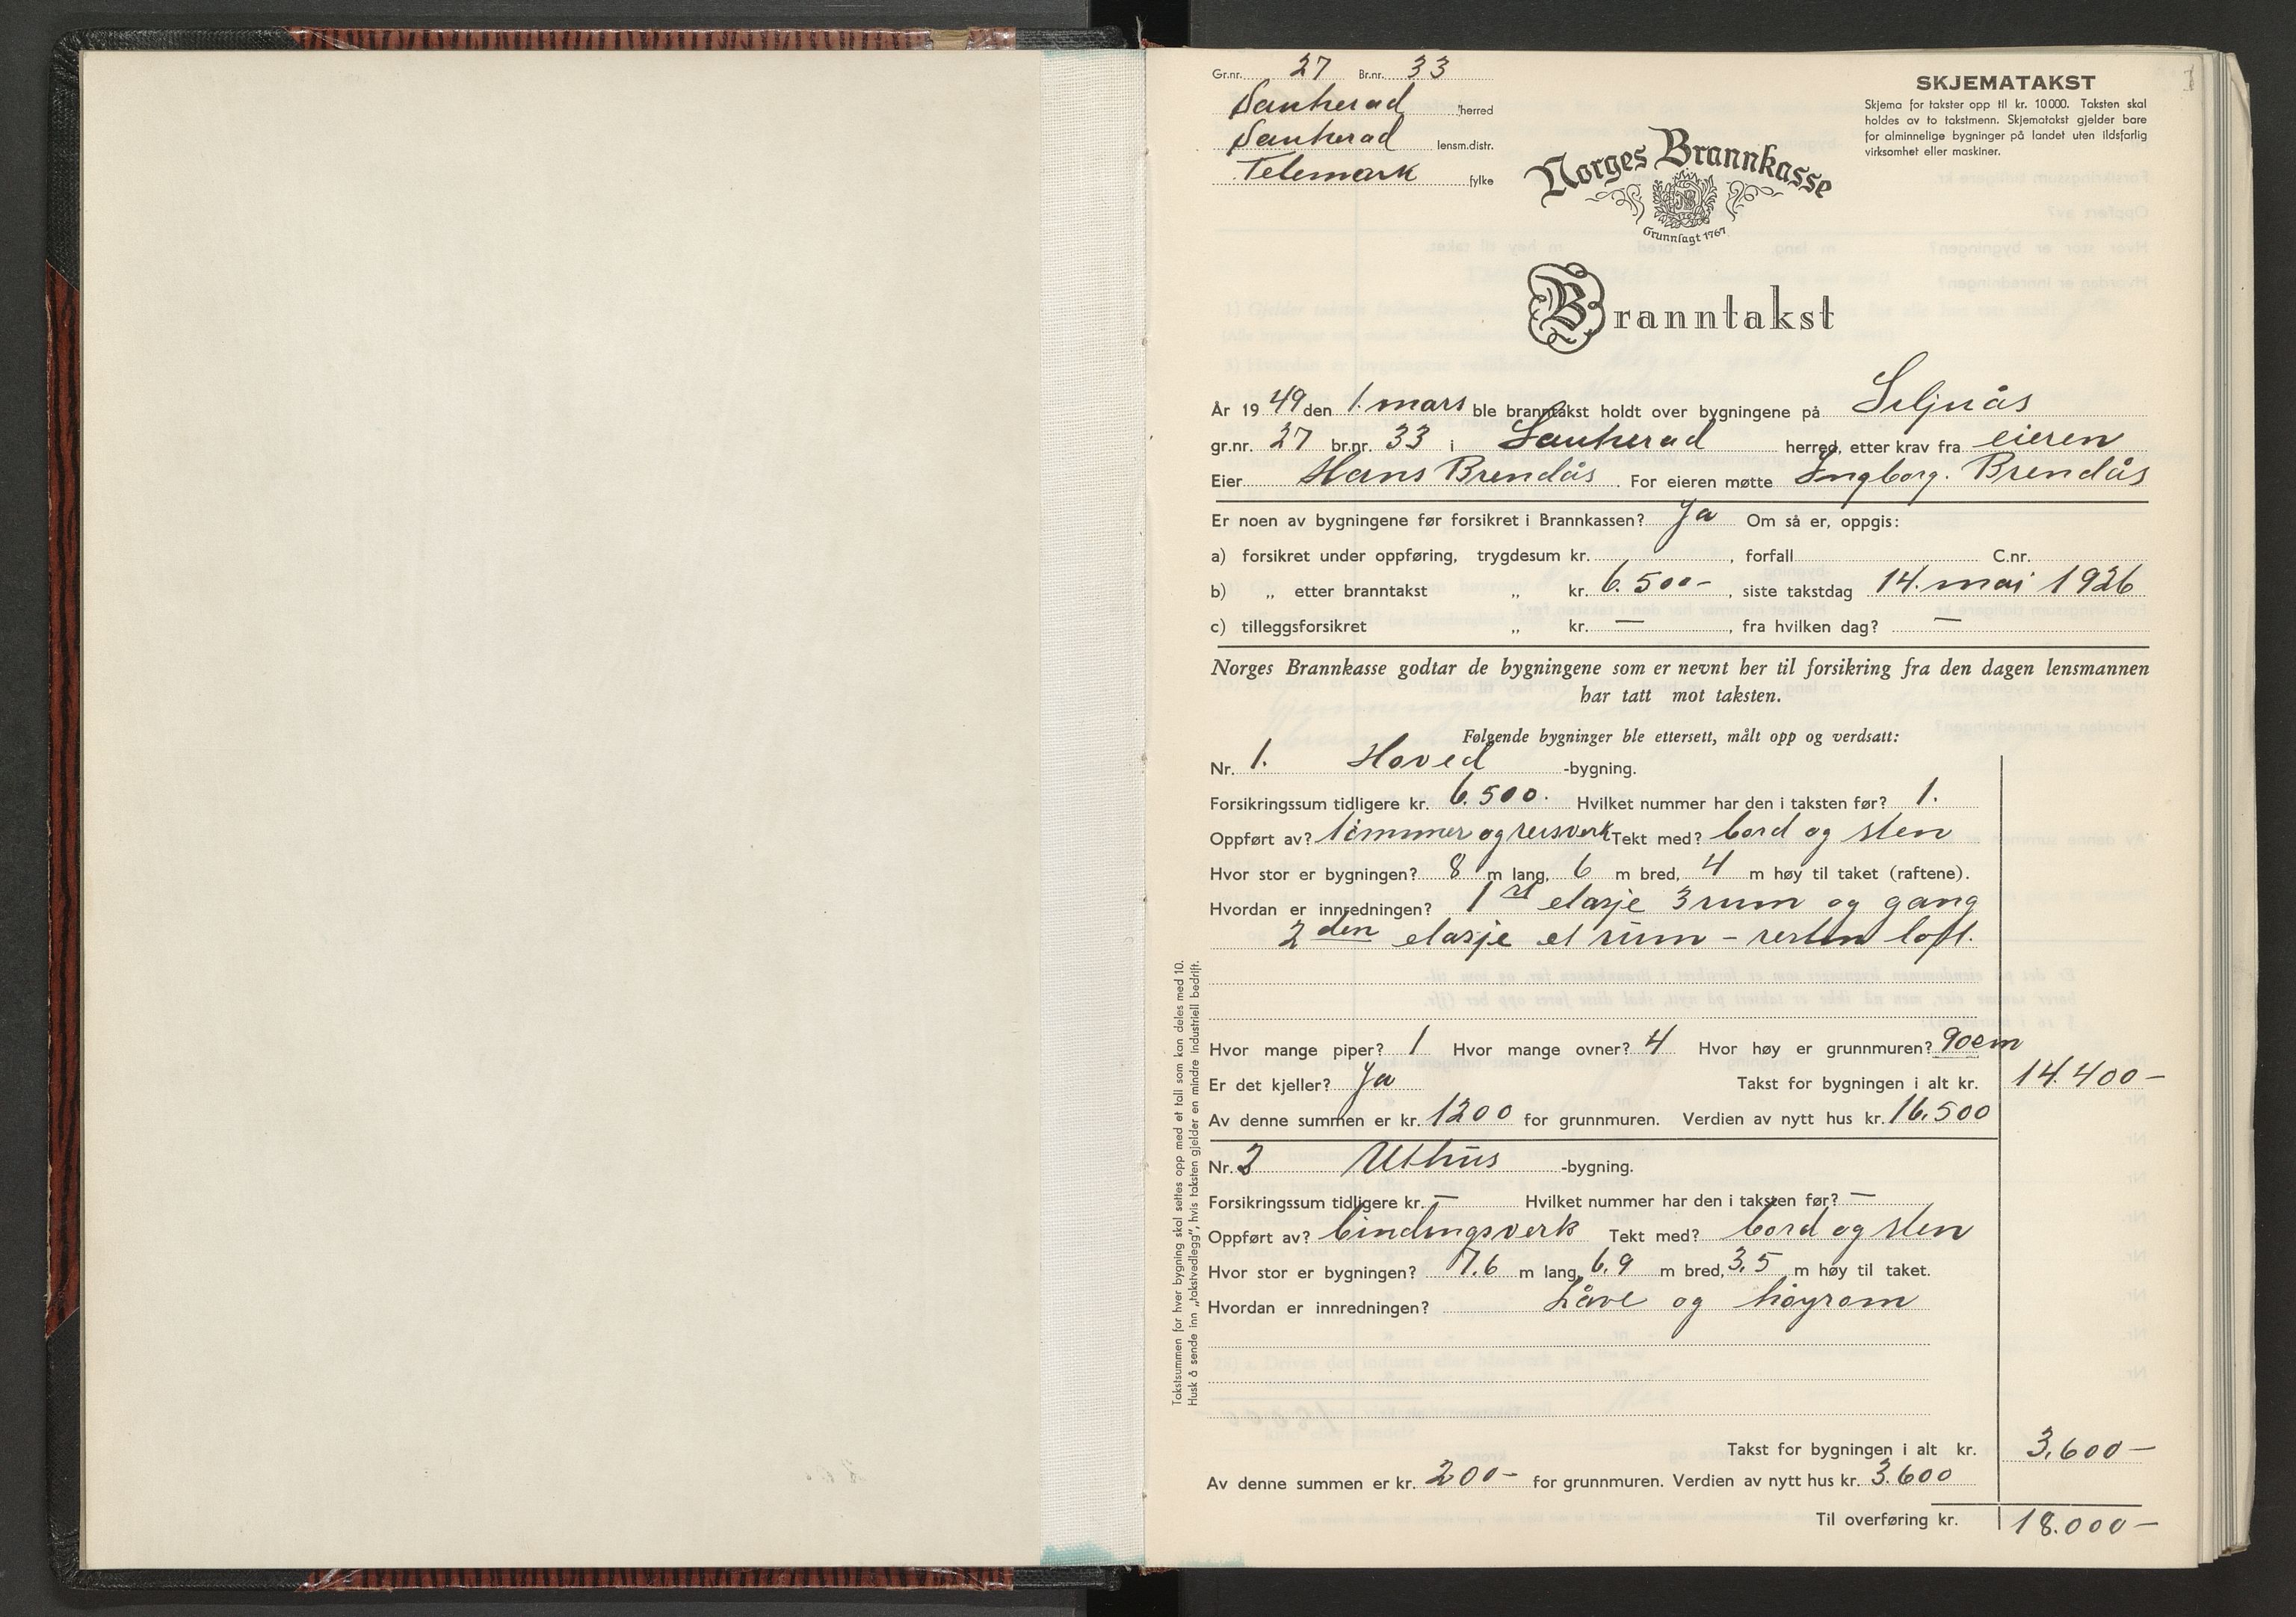 Gr.nr. 27 Br.nr. 33
Sauherad herred
Sauherad lensm.distr.
Telemark fylke
SKJEMATAKST
Skjema for takster opp til kr. 10000. Taksten skal
holdes av to takstmenn. Skjematakst gjelder bare
for alminnelige bygninger på landet uten ildsfarlig
virksomhet eller maskiner.
Norges Brannkasse
Grunnlagt 1767
Branntakst
År 1949 den 1. mars ble branntakst holdt over bygningene på Seljuås
gr.nr. 27 br.nr. 33 i Sauherad herred, etter krav fra eieren
Eier Hans Brendås. For eieren møtte Ingborg. Brendås
Er noen av bygningene før forsikret i Brannkassen? Ja Om så er, oppgis:
a) forsikret under oppføring, trygdesum kr. , forfall C.nr.
b) „ etter branntakst „ kr. 6.500- , siste takstdag 14. mai 1926
c) tilleggsforsikret „ kr. — , fra hvilken dag? —
Norges Brannkasse godtar de bygningene som er nevnt her til forsikring fra den dagen lensmannen
har tatt mot taksten.
Følgende bygninger ble ettersett, målt opp og verdsatt:
Nr. 1. Hoved -bygning.
Forsikringssum tidligere kr. 6.500. Hvilket nummer har den i taksten før? 1.
Oppført av? tømmer og reisverk Tekt med? bord og sten
Hvor stor er bygningen? 8 m lang, 6 m bred, 4 m høy til taket (raftene).
Hvordan er innredningen? 1st etasje 3 rum og gang
2den etasje et rum - resten loft.
Hvor mange piper? 1 Hvor mange ovner? 4 Hvor høy er grunnmuren? 90cm
Er det kjeller? Ja Takst for bygningen i alt kr. 14.400-
Av denne summen er kr. 1200 for grunnmuren. Verdien av nytt hus kr. 16.500
Nr. 2 Uthus -bygning.
Forsikringssum tidligere kr. — Hvilket nummer har den i taksten før? —
Oppført av? bindingsverk Tekt med? bord og sten
Hvor stor er bygningen? 7.6 m lang, 6.9 m bred, 3.5 m høy til taket.
Hvordan er innredningen? Låve og høyrom
Takst for bygningen i alt kr. 3.600-
Av denne summen er kr. 200- for grunnmuren. Verdien av nytt hus kr. 3.600
Til overføring kr. 18.000-
Takstsummen for hver bygning skal settes opp med et tall som kan deles med 10.
Husk å sende inn „takstvedlegg", hvis taksten gjelder en mindre industriell bedrift.